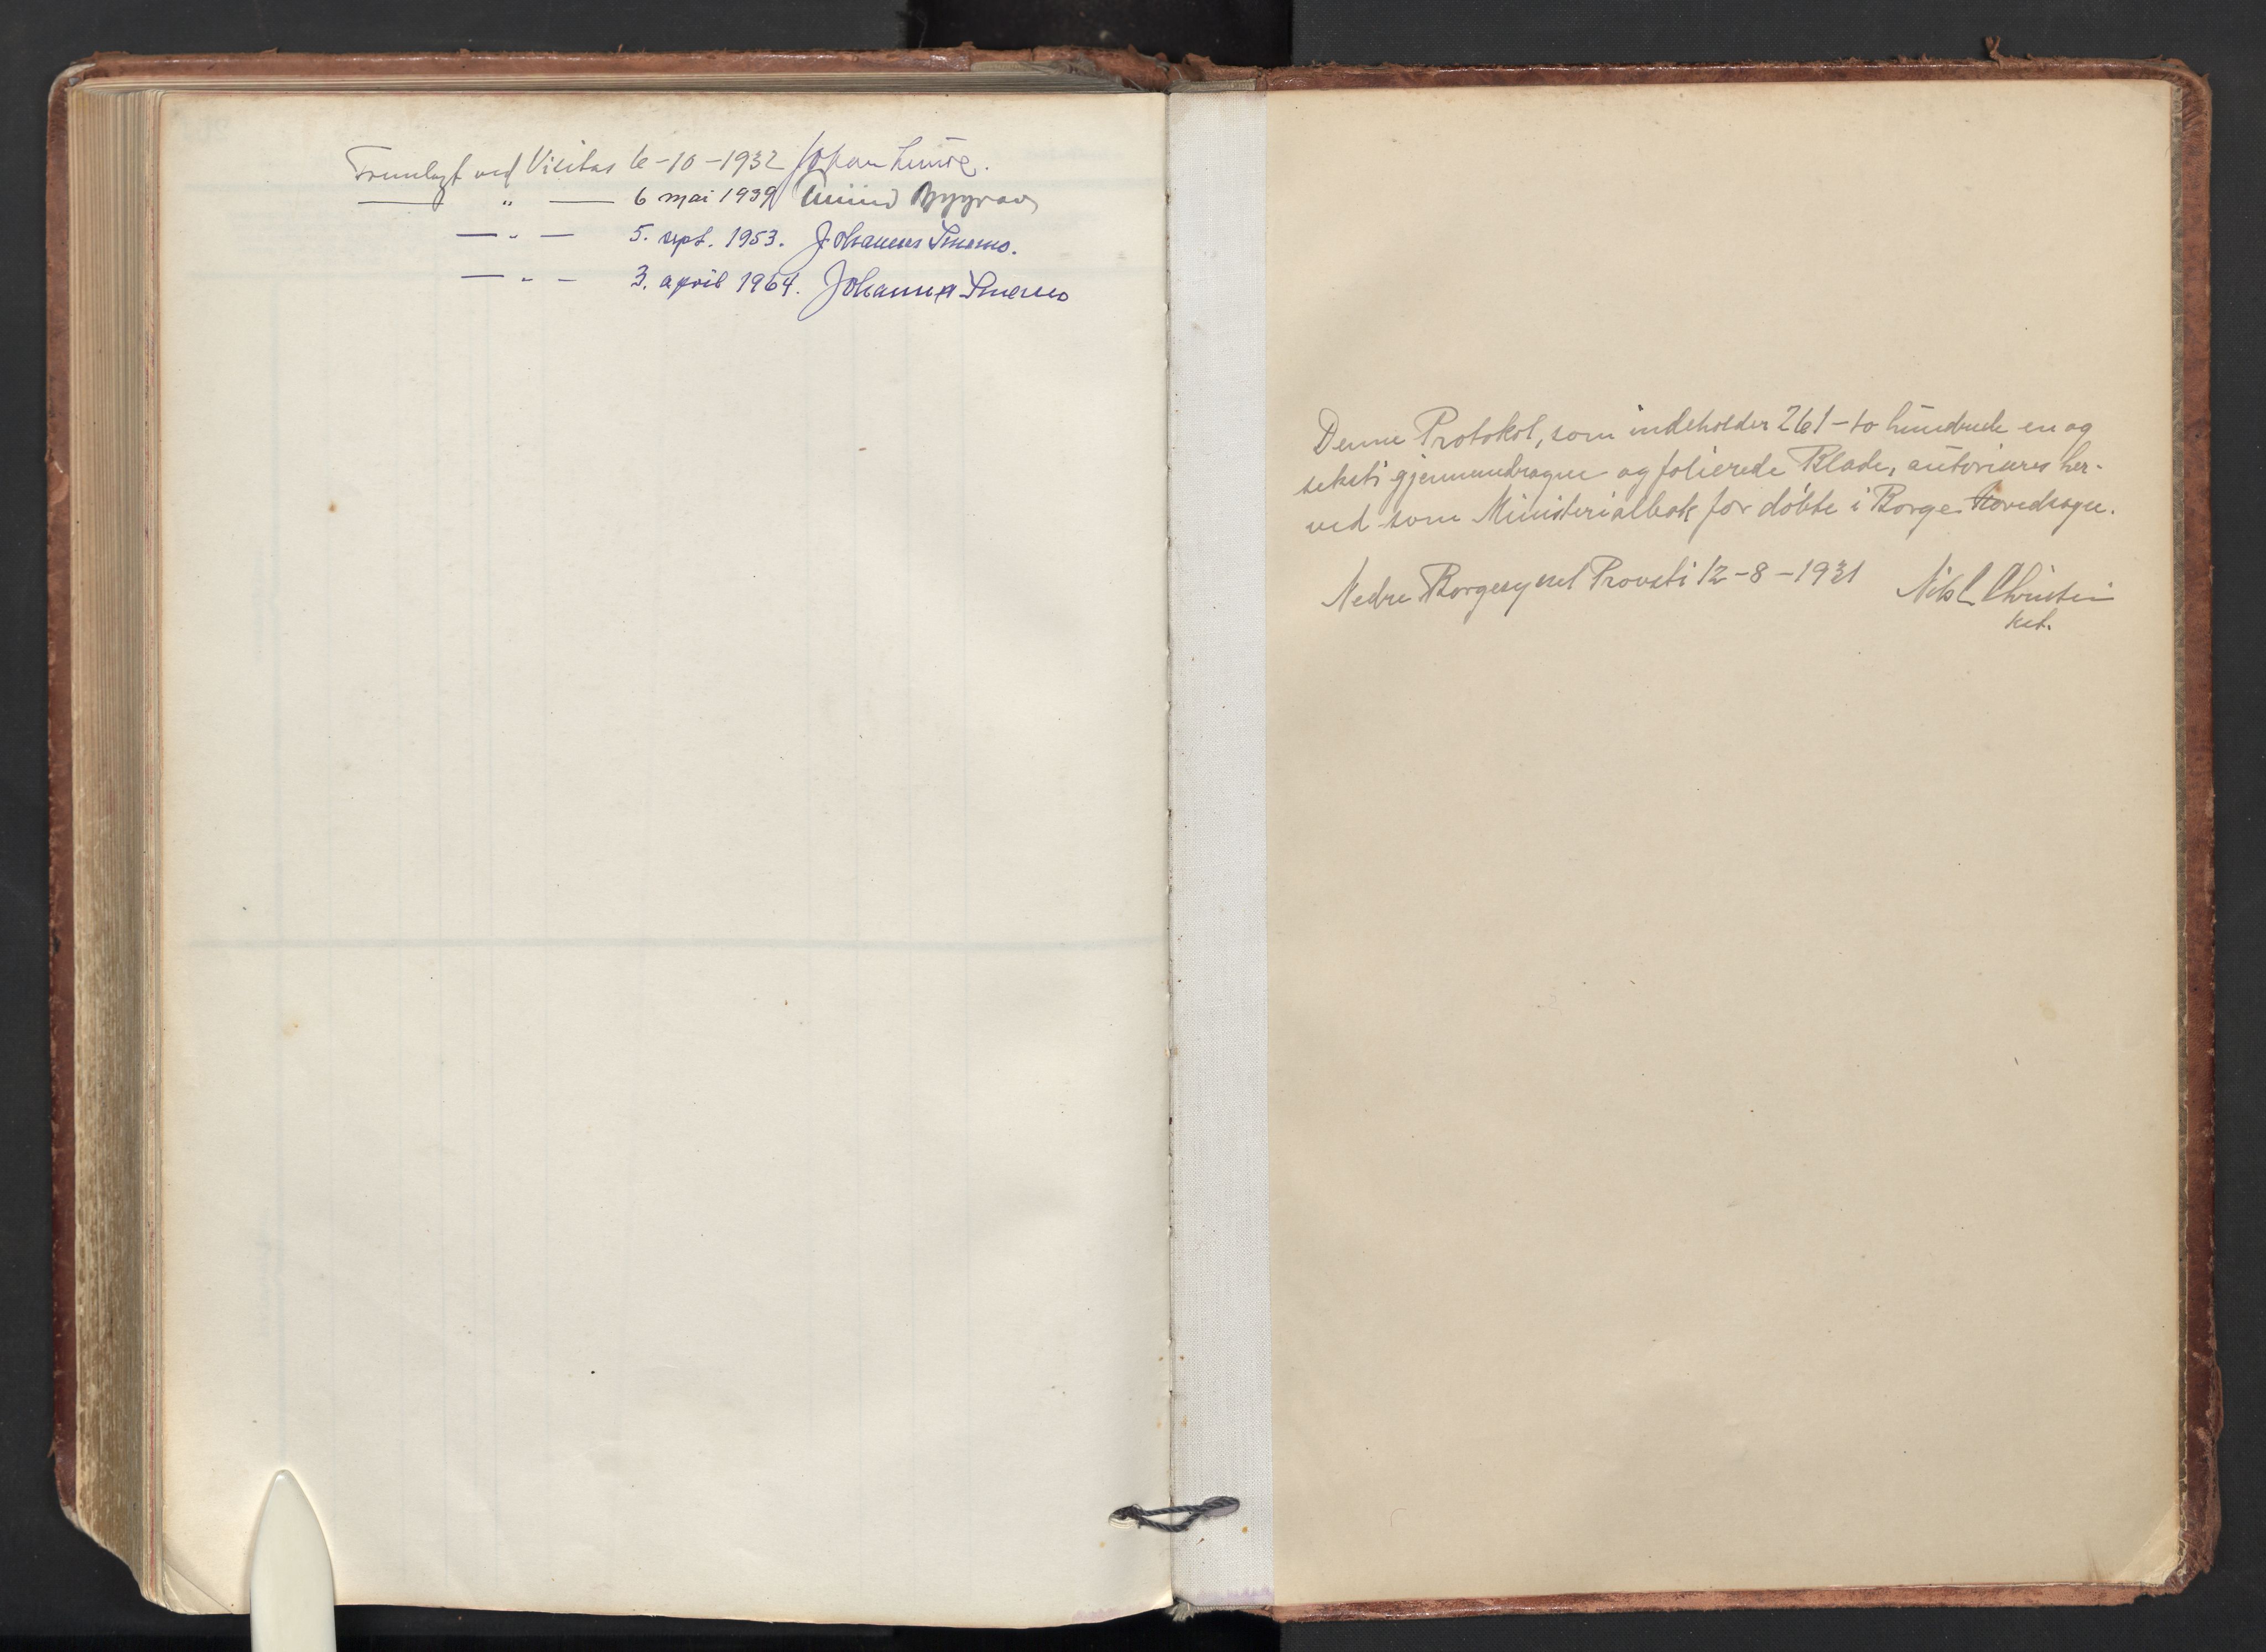 Fremlagt ved Visitas 6-10-1932 Johan Lunde.
— " — 6 mai 1939
— " — 5. sept. 1953. Johannes Smemo.
— " — 3. april 1964. Johannes Smemo
Denne Protokol, som indeholder 261 - to hundrede en og
seksti gjennemdragne og folierede Blade, autoriseres her-
ved som Ministerialbok for døbte i Borge Hovedsogn.
Nedre Borgesyssel Provsti 12-8-1931